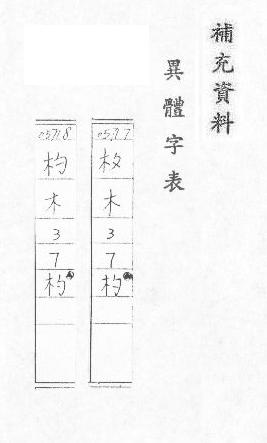 補充資料
異體字表
杦
木
3
7
杓
05718
杓
木
3
7
杓